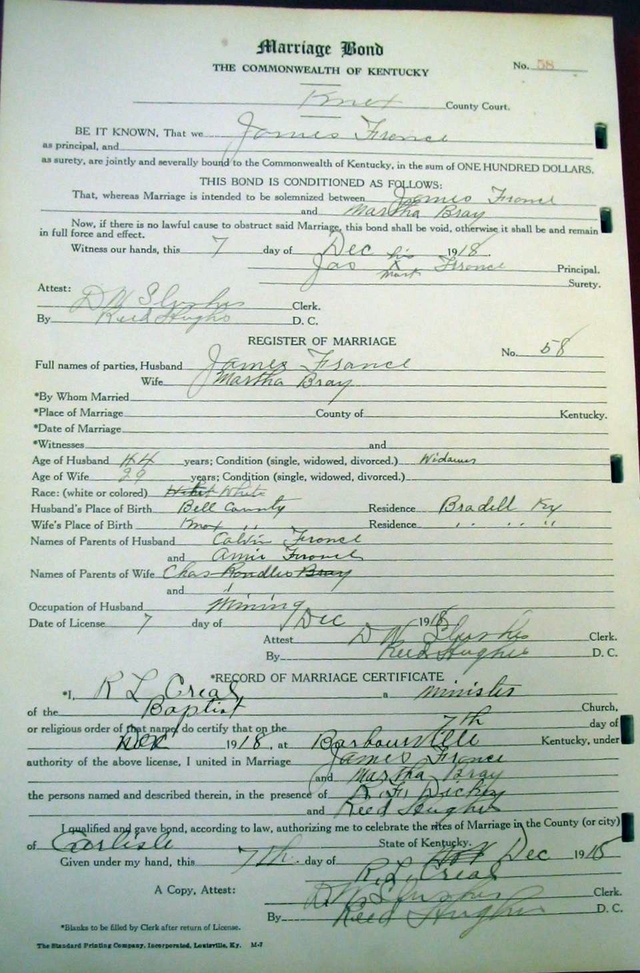 Marriage Bond
THE COMMONWEALTH OF KENTUCKY
No. 58
Knox County Court.
BE IT KNOWN, That we James France
as principal, and
as surety, are jointly and severally bound to the Commonwealth of Kentucky, in the sum of ONE HUNDRED DOLLARS.
THIS BOND IS CONDITIONED AS FOLLOWS:
That, whereas Marriage is intended to be solemnized between James France
and Martha Bray
Now, if there is no lawful cause to obstruct said Marriage, this bond shall be void, otherwise it shall be and remain
in full force and effect.
Witness our hands, this 7 day of Dec 1918
Jas his mark France Principal.
Surety.
Attest:
D W Slusher Clerk.
By Reed Hughes D. C.
REGISTER OF MARRIAGE
No. 58
Full names of parties, Husband James France
Wife Martha Bray
*By Whom Married
*Place of Marriage County of Kentucky.
*Date of Marriage
*Witnesses and
Age of Husband 44 years; Condition (single, widowed, divorced.) Widower
Age of Wife 29 years; Condition (single, widowed, divorced.)
Race: (white or colored) White
Husband's Place of Birth Bell County Residence Ky
Wife's Place of Birth Knox " Residence " " "
Names of Parents of Husband Calvin France
and France
Names of Parents of Wife Chas Bray
and "
Occupation of Husband Mining
Date of License 7 day of Dec 1918
Attest D W Slusher Clerk.
By Reed Hughes D. C.
*RECORD OF MARRIAGE CERTIFICATE
*I, R L Creal a minister
of the Baptist Church,
or religious order of that name, do certify that on the 7th day of
Dec 1918, at Barbourville Kentucky, under
authority of the above license, I united in Marriage James France
and Martha Bray
the persons named and described therein, in the presence of R. F. Dickey
and Reed Hughes
I qualified and gave bond, according to law, authorizing me to celebrate the rites of Marriage in the County (or city)
of Carlisle State of Kentucky.
Given under my hand, this 7th day of Dec 1918
R. L. Creal
A Copy, Attest: D W Slusher Clerk.
By Reed Hughes D. C.
*Blanks to be filled by Clerk after return of License.
The Standard Printing Company, Incorporated, Louisville, Ky. M-7